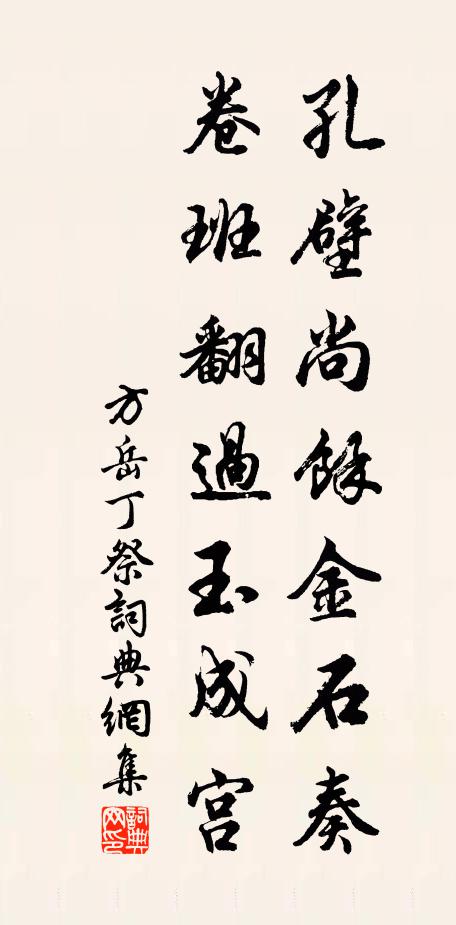 孔壁尚餘金石奏
卷班翻過玉成宮
方岳丁祭詞典網集
詞典網印